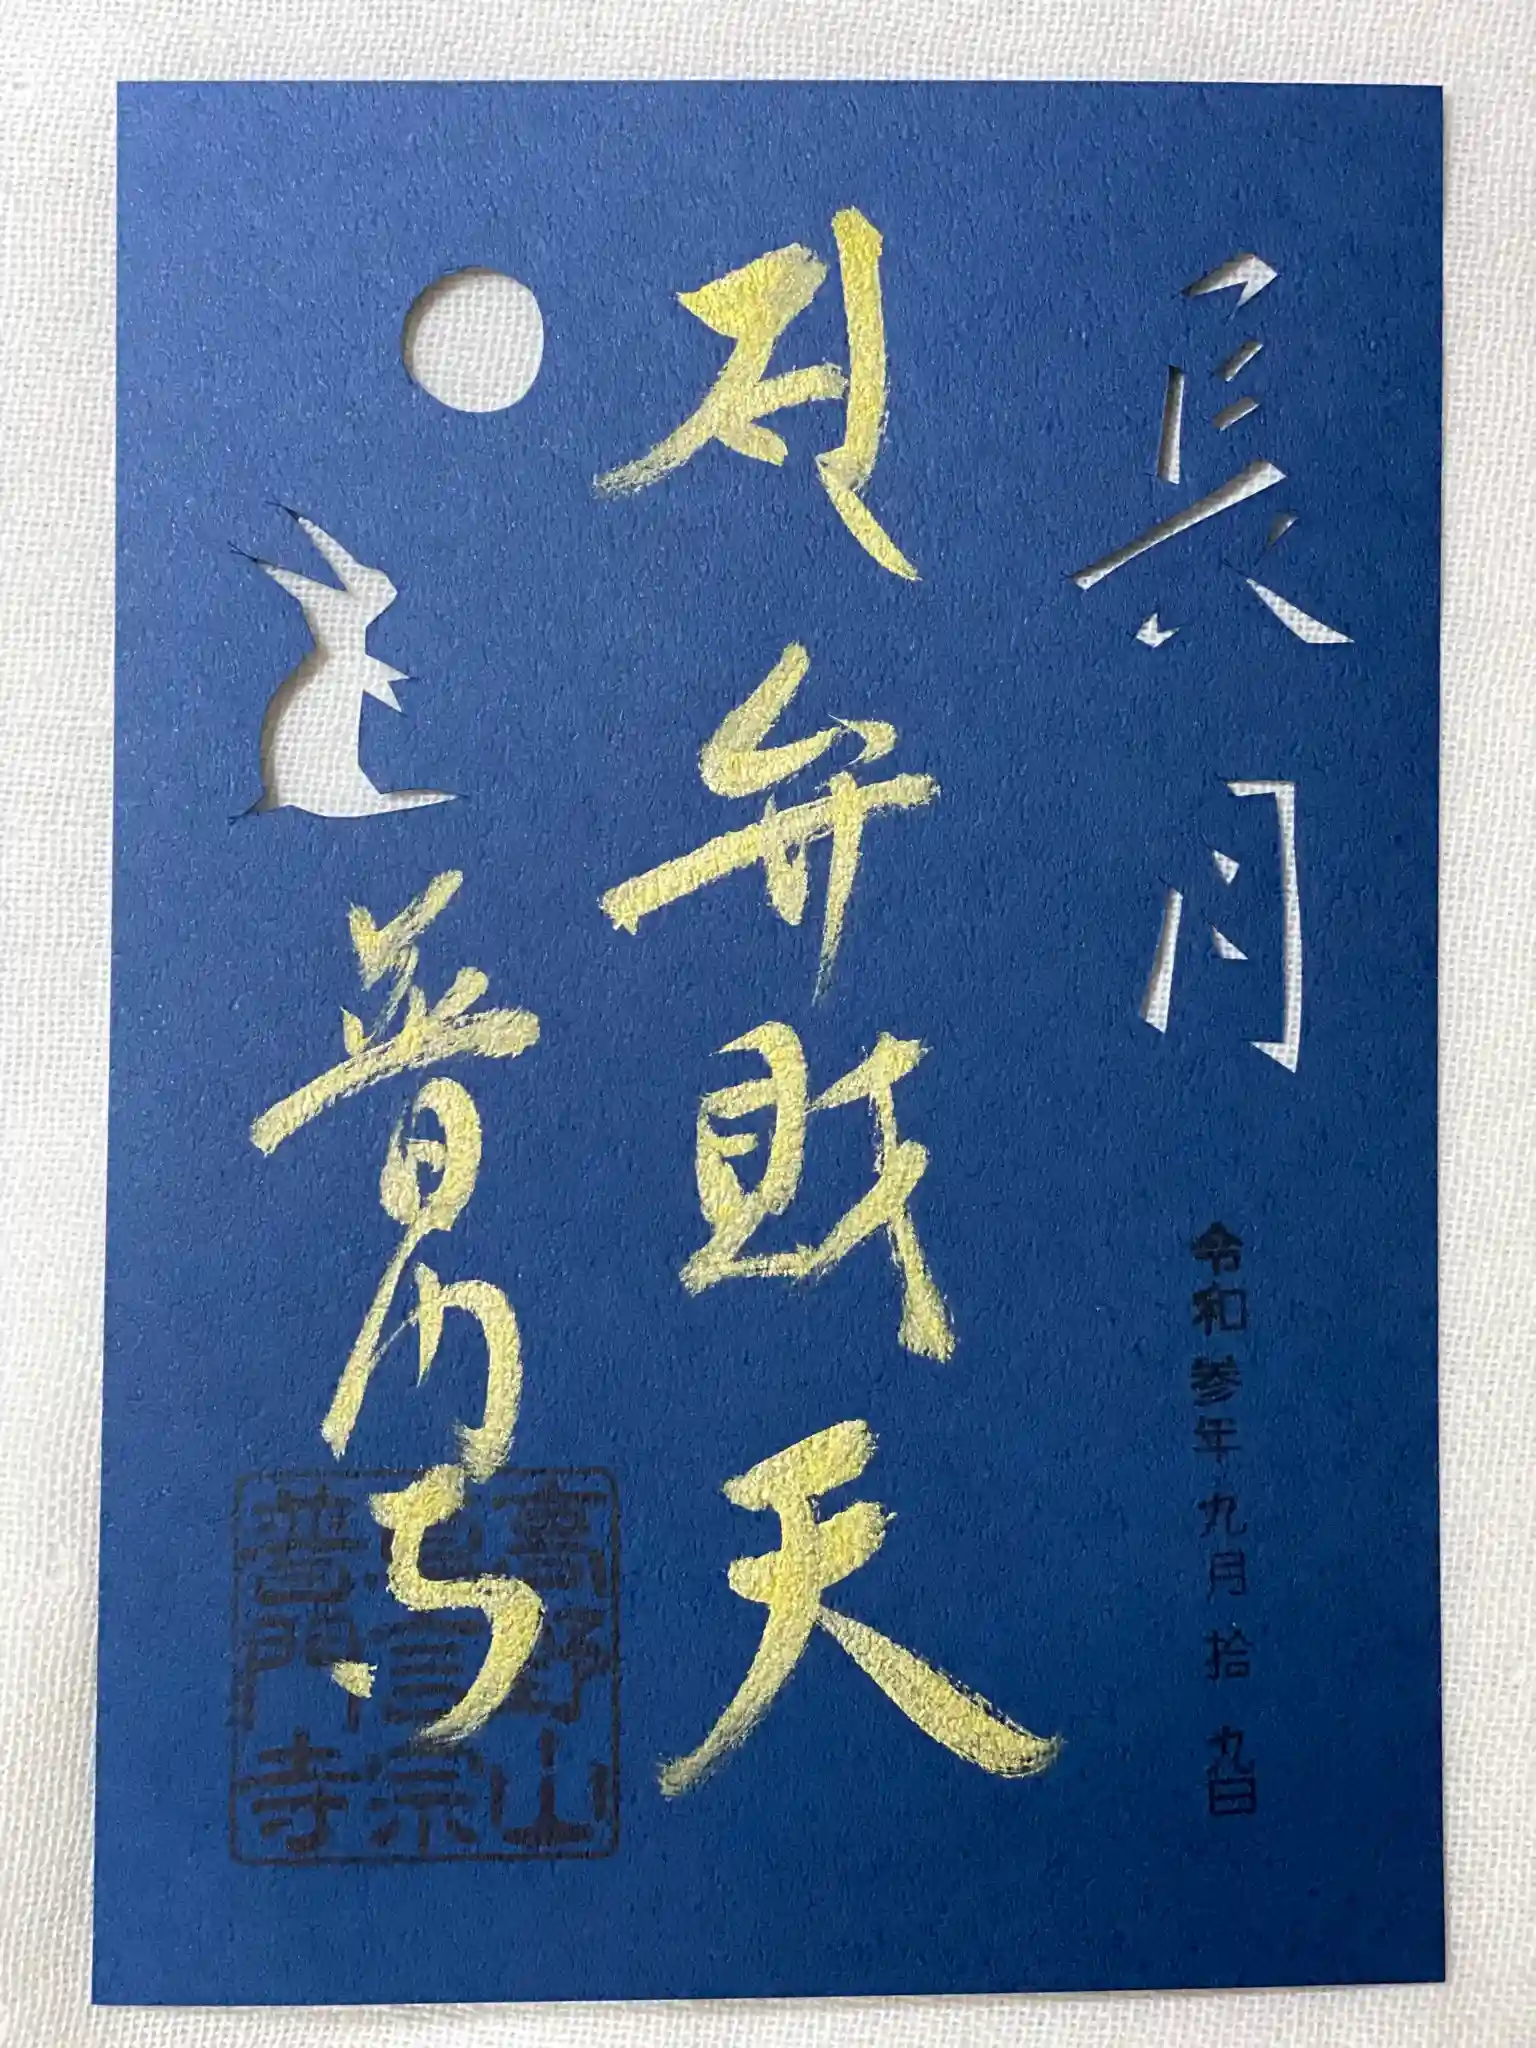 長月
令和参年九月拾九日
弁財天
普門寺
高野山
真言宗
普門寺